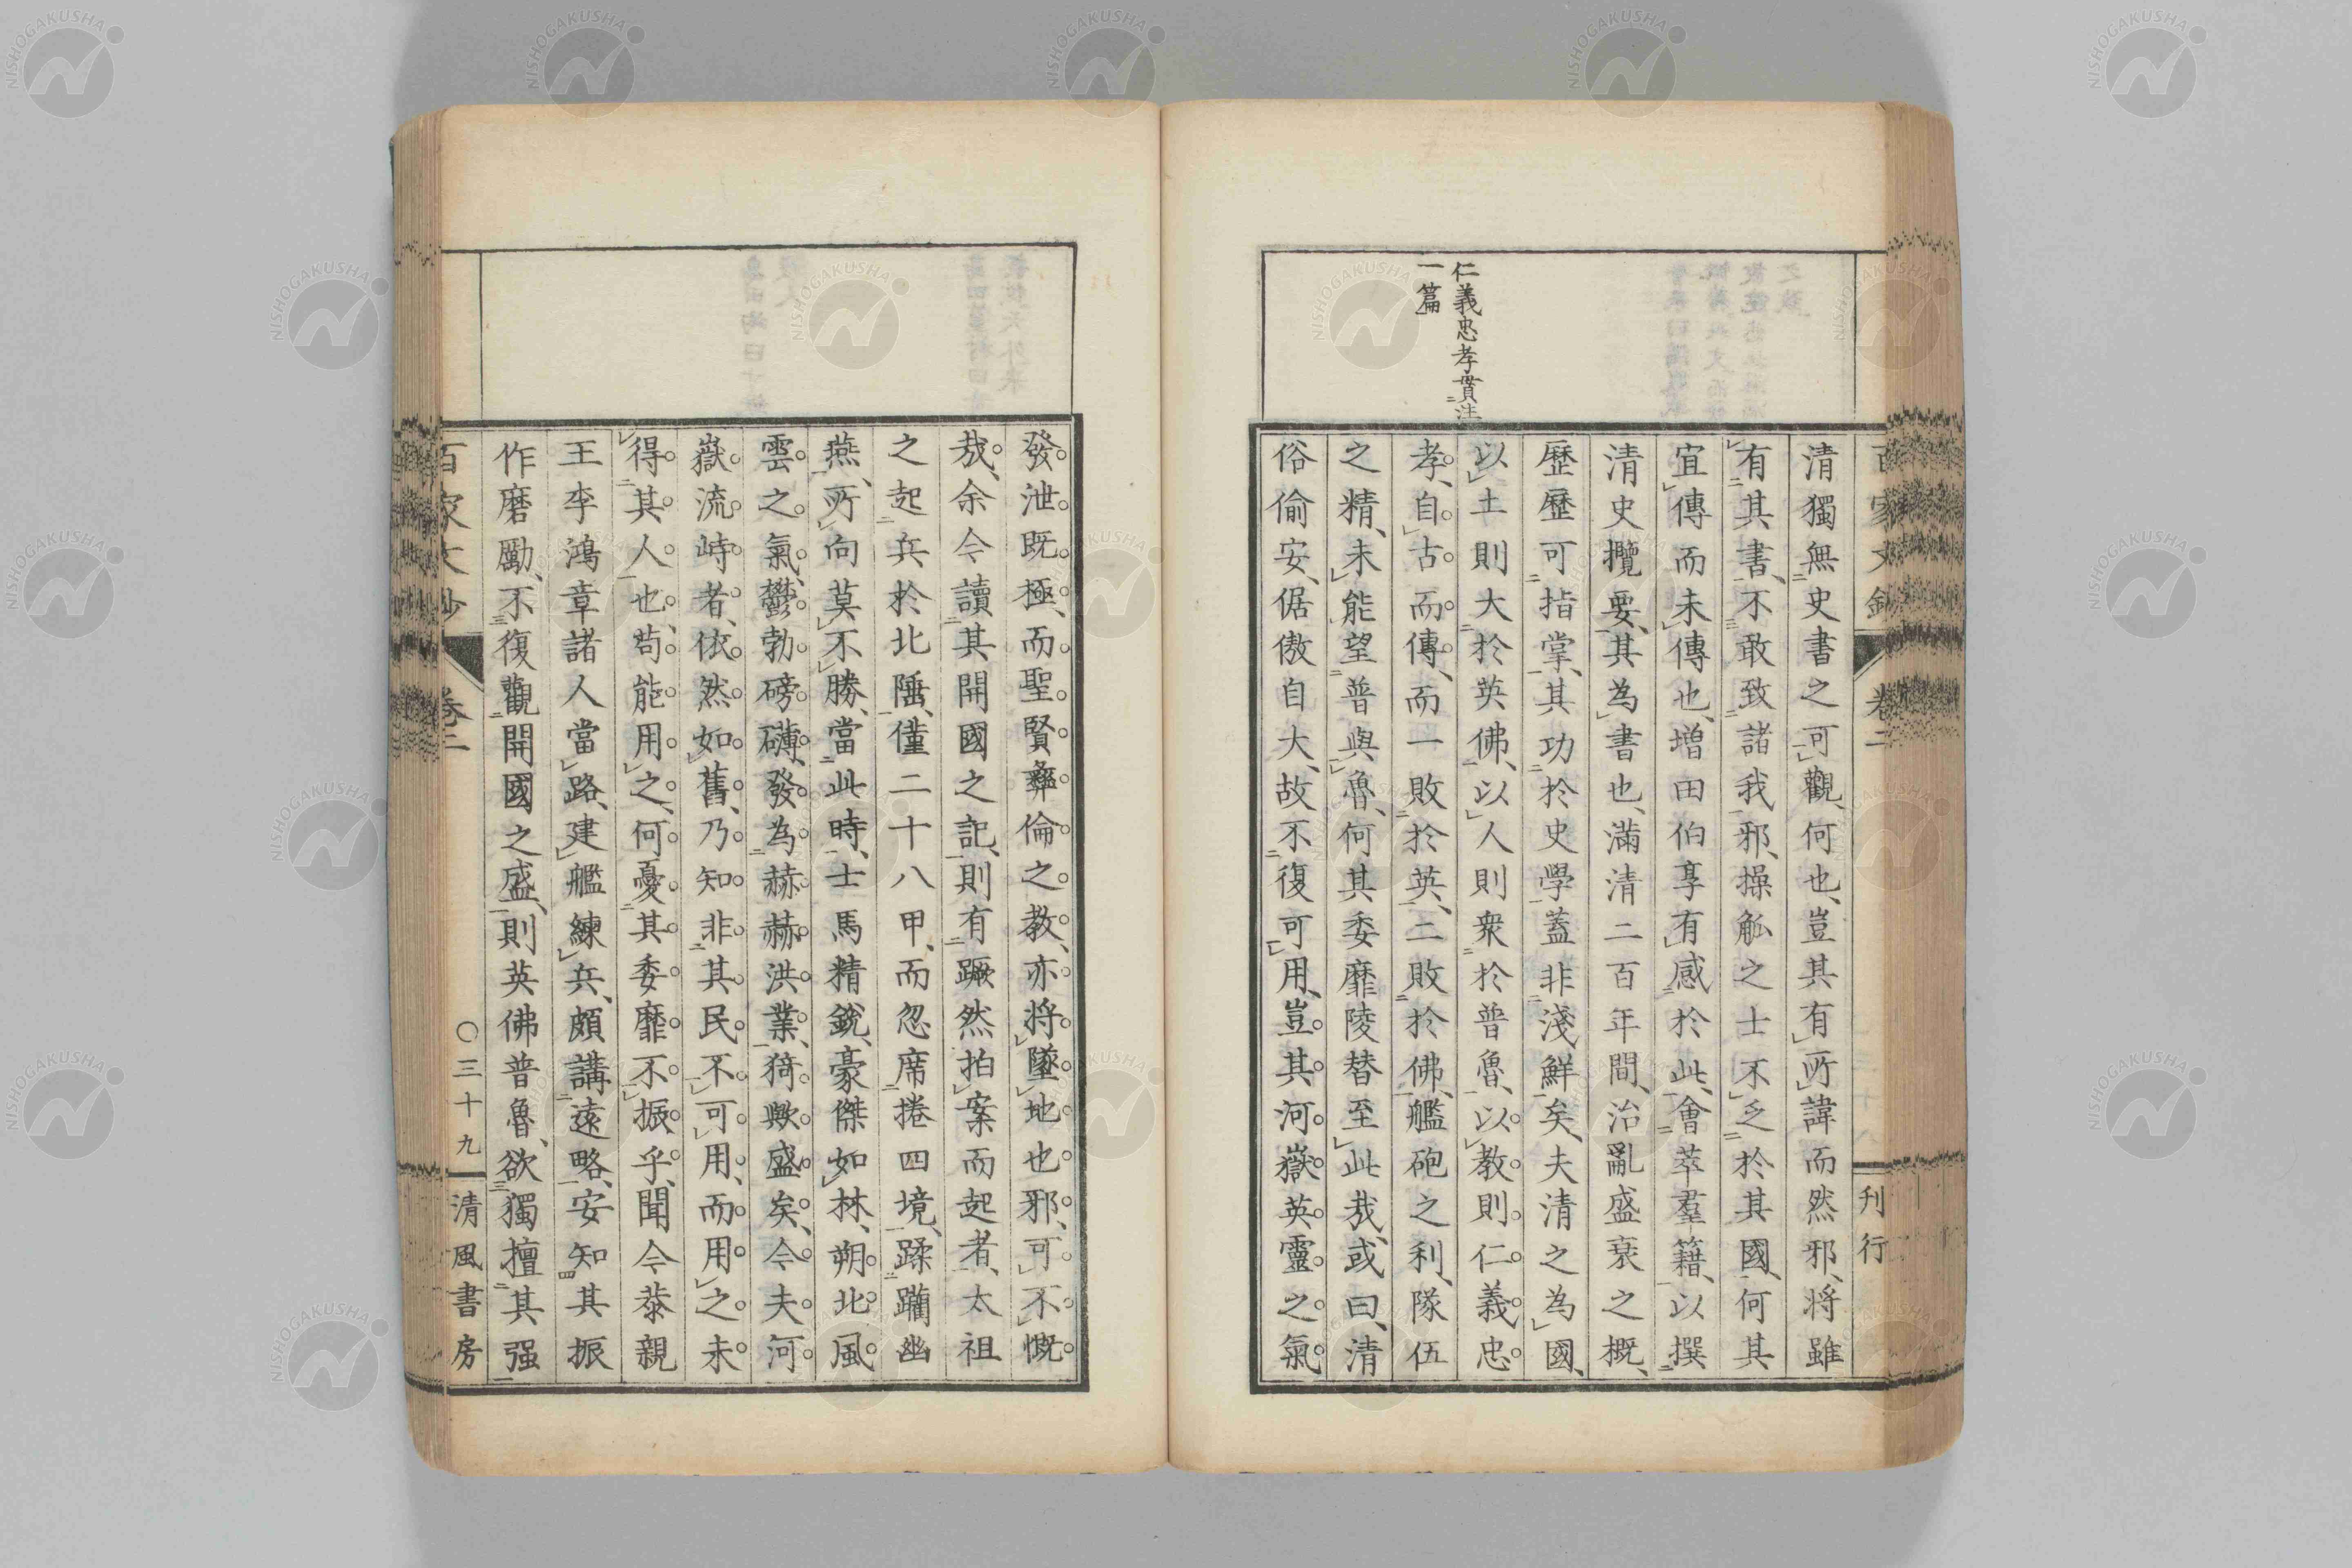 百家文鈔
卷二
刊行
仁義忠孝貫注
一篇
清獨無史書之可觀、何也、豈其有所諱而然邪、將雖
有其書、不敢致諸我邪、操觚之士不乏於其國、何其
宜傳而未傳也、增田伯享有感於此、會萃羣籍、以撰
清史攬要、其為書也、滿清二百年間、治亂盛衰之概、
歷歷可指掌、其功於史學蓋非淺鮮矣、夫清之為國、
以土則大於英佛、以人則衆於普魯、以教則仁義忠
孝、自古而傳、而一敗於英、二敗於佛、艦砲之利、隊伍
之精、未能望普與魯、何其委靡陵替至此哉、或曰、清
俗偷安、倨傲自大、故不復可用、豈其河嶽英靈之氣
發泄既極、而聖賢彝倫之教、亦將墜地也邪、可不慨
哉、余今讀其開國之記、則有蹶然拍案而起者、太祖
之起兵於北陲、僅二十八甲、而忽席捲四境、蹂躪幽
燕、所向莫不勝、當此時、士馬精銳、豪傑如林、朔北風
雲之氣、鬱勃磅礴、發為赫赫洪業、猗歟盛矣、今夫河
嶽流峙者、依然如舊、乃知非其民不可用、而用之未
得其人也、苟能用之、何憂其委靡不振乎、聞今恭親
王李鴻章諸人當路、建艦練兵、頗講遠略、安知其振
作磨勵、不復觀開國之盛、則英佛普魯、欲獨擅其强
百家文鈔
卷二
〇三十九
清風書房